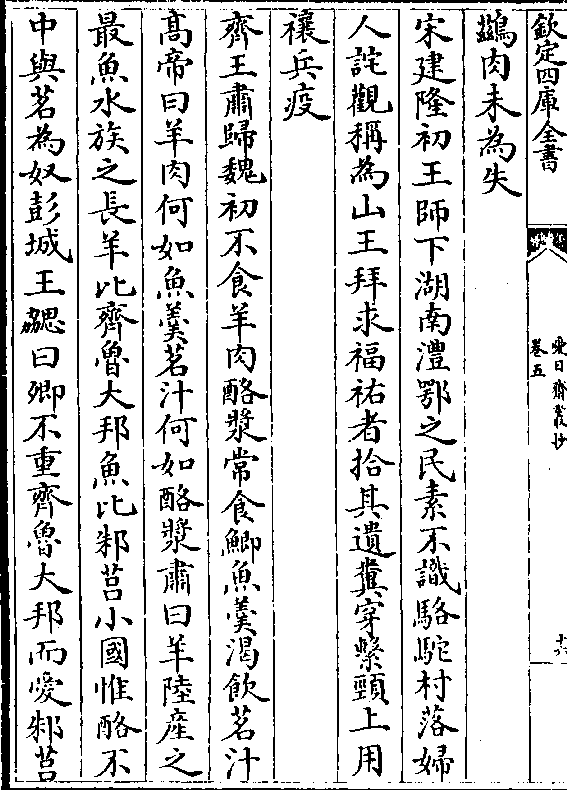 欽定四庫全書
愛日齋叢抄
卷五
十六
鷄肉未為失
宋建隆初王師下湖南澧鄂之民素不識駱駝村落婦
人詫觀稱為山王拜求福祐者拾其遺糞穿繫頸上用
禳兵疫
齊王肅歸魏初不食羊肉酪漿常食鯽魚羹渴飲茗汁
髙帝曰羊肉何如魚羮茗汁何如酪漿肅曰羊陸産之
最魚水族之長羊比齊魯大邦魚比邾莒小國惟酪不
中與茗為奴彭城王勰曰卿不重齊魯大邦而愛邾莒